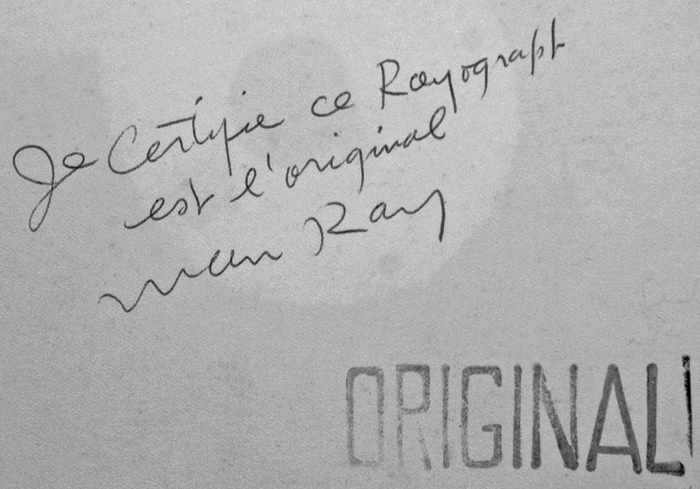 Je Certifie ce Rayograph
est l'original
Man Ray
ORIGINAL